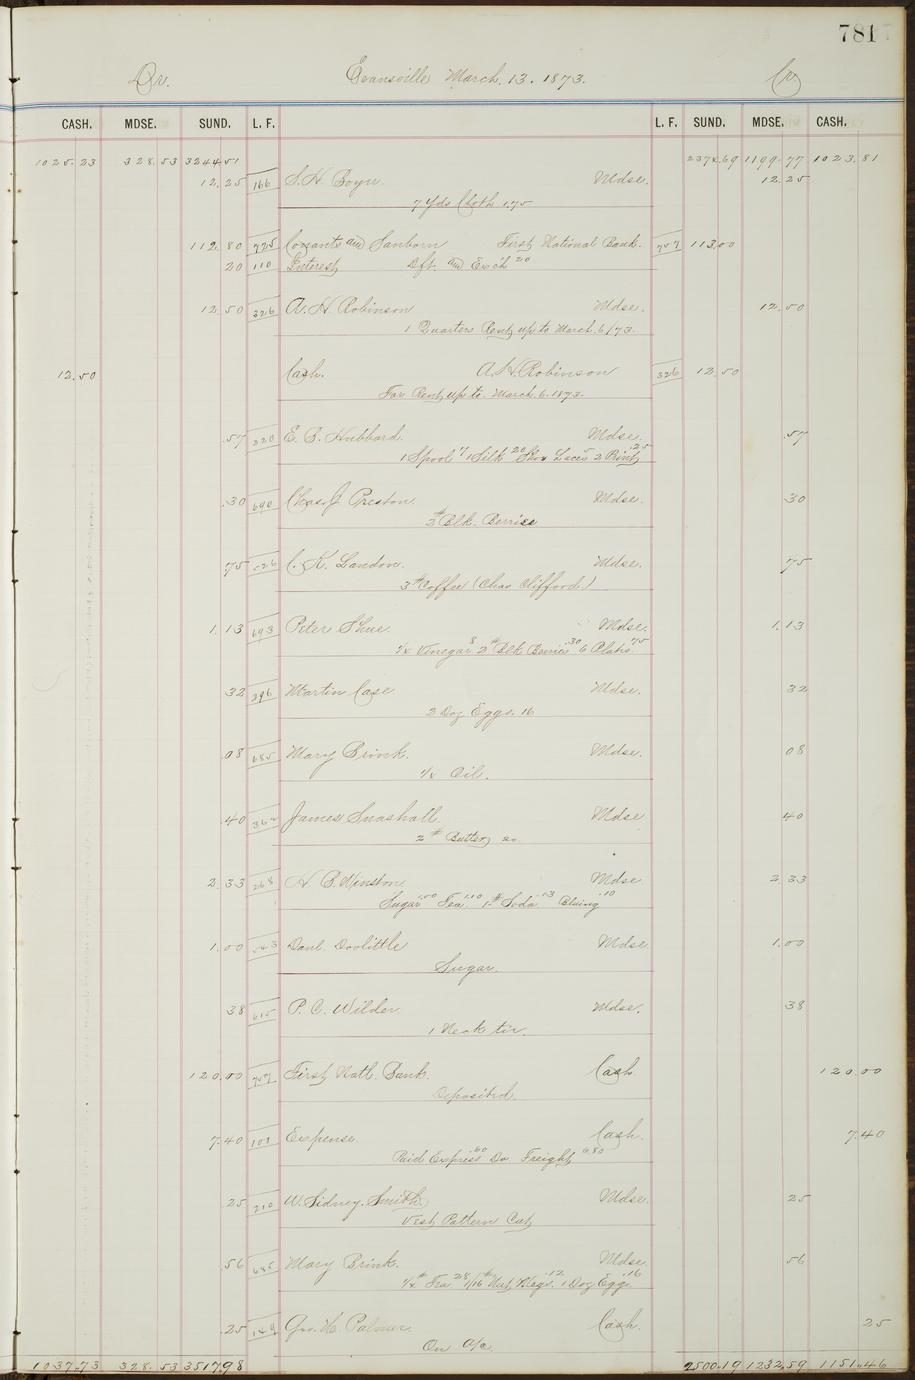 781
Dr. Evansville March. 13. 1873. Cr
CASH. MDSE. SUND. L. F. L. F. SUND. MDSE. CASH.
1025.23 328.53 3244.51 2374.69 1199.77 1023.81
12.25 166 S. H. Boyn. Mdse. 12.25
7 Yds Cloth 1.75
112.80 725 Conants and Sanborn First National Bank. 707 113.00
20 110 Interest Dft. and Exch 20
12.50 326 A. H. Robinson Mdse. 12.50
1 Quarters Rent up to March. 6/73.
12.50 Cash. A. H. Robinson 326 12.50
For Rent up to. March. 6. 1873.
.57 220 E. B. Hubbard. Mdse. .57
1 Spool 7 1 Silk 20 Shoe Laces 5 2 Prints .25
.30 690 Chas. J. Preston. Mdse. 30
2# Blk. Berries
75 526 C. K. Landon. Mdse. 75
3# Coffee (Chas Clifford.)
1.13 693 Peter Shue. Mdse. 1.13
1/4 Vinegar 8 2# Blk Berries .30 6 Plates 75
32 396 Martin Case Mdse. 32
2 Doz Eggs. 16
08 685 Mary Brink. Mdse. 08
1/4 Oil.
.40 362 James Snashall. Mdse 40
2# Butter 20
2.33 268 H. B. Winston. Mdse 2.33
Sugar 1.00 Tea 1.10 1# Soda .13 Bluing .10
1.00 543 Danl. Doolittle Mdse. 1.00
Sugar.
38 615 P. C. Wilder. Mdse. 38
1 Neck tie.
120.00 707 First Natl. Bank. Cash 120.00
Deposited.
7.40 101 Expense. Cash. 7.40
Paid Express .60 Do Freight 6.80
25 210 W. Sidney Smith. Mdse. 25
Vest Pattern Cut
56 685 Mary Brink. Mdse. 56
1/4# Tea 28 1/16# Nut Megs. .12 1 Doz Eggs .16
.25 149 Geo. H. Palmer. Cash. 25
On a/c.
1037.73 328.53 3517.98 2500.19 1232.59 1151.46